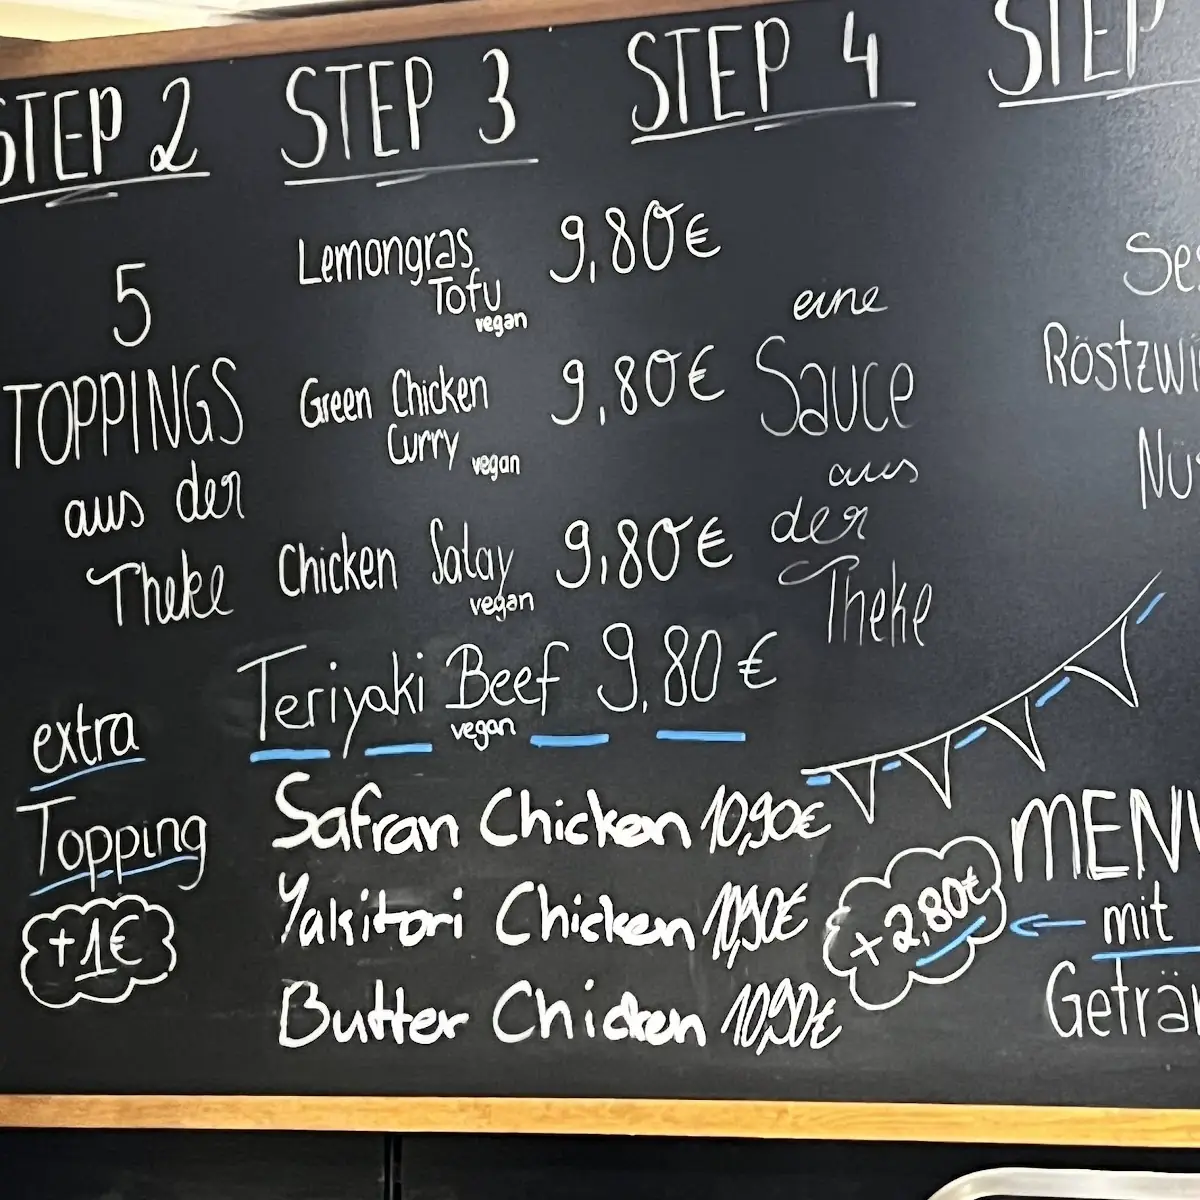 STEP 2
5
TOPPINGS
aus der
Theke
extra
Topping
+1€
STEP 3
Lemongras 9,80€
Tofu
vegan
Green Chicken 9,80€
Curry
vegan
Chicken Satay 9,80€
vegan
Teriyaki Beef 9,80€
vegan
Safran Chicken 10,90€
Yakitori Chicken 10,90€
Butter Chicken 10,90€
STEP 4
eine
Sauce
aus
der
Theke
STEP
MENU
+2,80€
mit